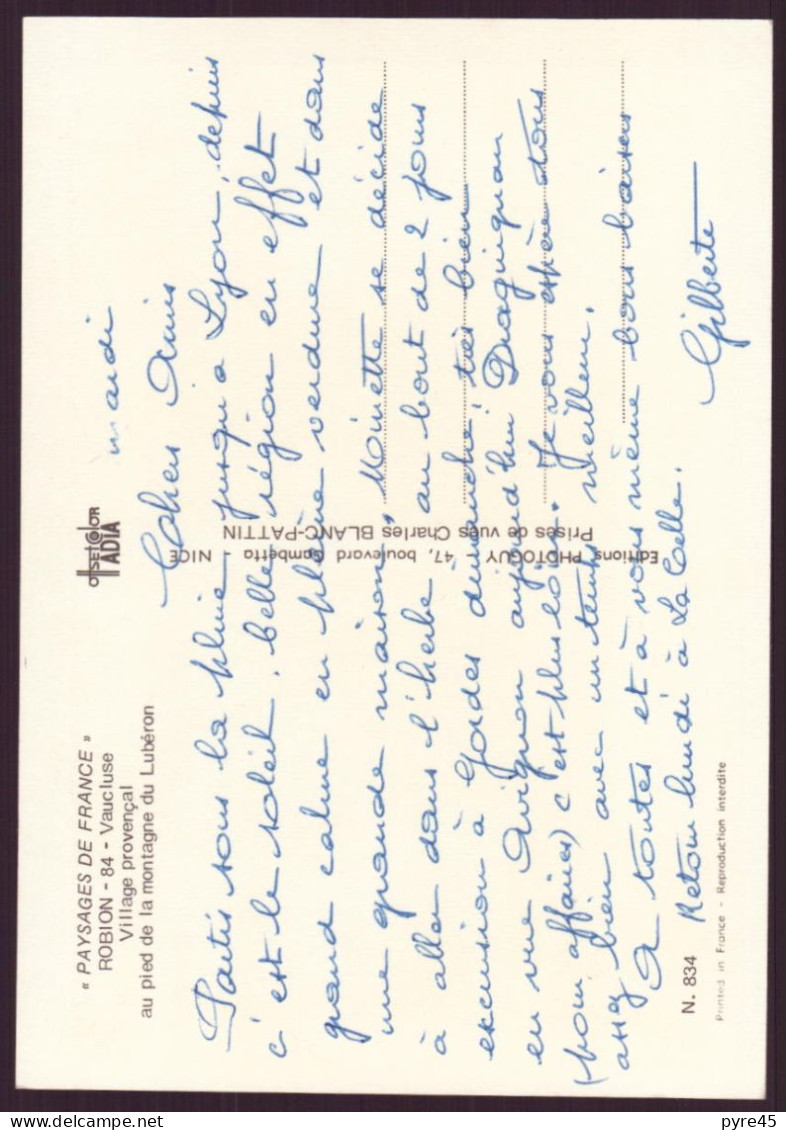 « PAYSAGES DE FRANCE »
ROBION - 84 - Vaucluse
Village provençal
au pied de la montagne du Lubéron
OFFSETCOLOR
IADIA
mardi
Chers Amis
Partis sous la pluie jusqu'à Lyon, depuis
c'est le soleil, belle région en effet
grand calme en pleine verdure et dans
une grande maison, Minette se décide
à aller dans l'herbe au bout de 2 jours
excursion à Gordes dimanche, très bien
en vue Avignon aujourd'hui Draguignan
(pour affaires) c'est plus loin. Je vous espère tous
assez bien avec un temps meilleur.
A toutes et à vous même bons baisers
Retour lundi à La Celle.
Gilberte
Editions PHOTOGUY - 47, boulevard Gambetta - NICE
Prises de vues Charles BLANC-PATTIN
N. 834
Printed in France - Reproduction interdite
pyre45